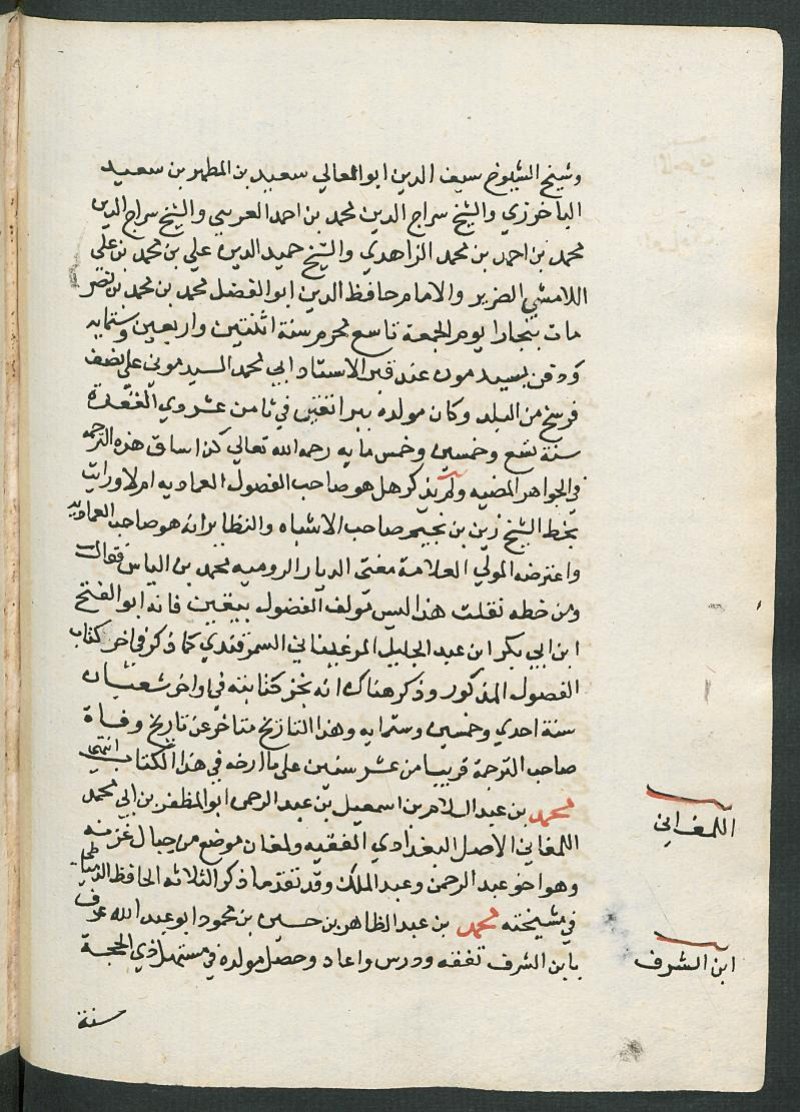 وشيخ الشيوخ سيف الدين ابو المعالي سعيد بن المطهر بن سعيد
الباخرزي والشيخ سراج الدين محمد بن احمد العربي والشيخ سراج الدين
محمد بن احمد بن محمد الزاهدي والشيخ حميد الدين علي بن محمد بن علي
اللامشي الضرير والامام حافظ الدين ابو الفضل محمد بن محمد بن نصر
مات ببخارا يوم الجمعة تاسع محرم سنة اثنتين واربعين وستمايه
ودفن بسيدمون عند قبر الاستاد ابي محمد السيدموني علي نصف
فرسخ من البلد وكان مولده ببراتقين في ثامن عشر ذوي القعدة
سنة تسع وخمسين وخمس مايه رحمه الله تعالي كذا ساق هذه الترجمه
في الجواهر المضيه ولم يذكر هل هو صاحب الفصول العماديه ام لا ورايت
بخط الشيخ زين بن نجيم صاحب الاشباه والنظاير انه هو صاحب العماديه
واعترضه المولي العلامة مفتي الديار الروميه محمد بن الياس فقال
ومن خطه نقلت هذا ليس مولف الفصول بيقين فانه ابو الفتح
ابن ابي بكر ابن عبد الجليل المرغيناني السمرقندي كما ذكر في اخر كتاب
الفصول المذكور وذكر هناك انه نجز كتابته في اواخر شعبان
سنة احدي وخمسين وستمايه وهذا التازيخ متاخر عن تاريخ وفاة
صاحب الترجمة قريبا من عشر سنين علي ما ارخه في هذا الكتاب انتهي
محمد بن عبد السلام بن اسمعيل بن عبد الرحمن ابو المظفر بن ابي محمد
اللمغاني الاصل البغدادي الفقيه ولمغان موضع من جبال غزنه
وهو اخو عبد الرحمن وعبد الملك وقد تقدما ذكر الثلاثه الحافظ الدمياطي
في مشيخته محمد بن عبد الظاهر بن حسين بن محمود ابو عبد الله عرف
بابن الشرف تفقه ودرس واعاد وحصل مولده في مستهل ذي الحجة
سنة
اللمغاني
ابن الشرف